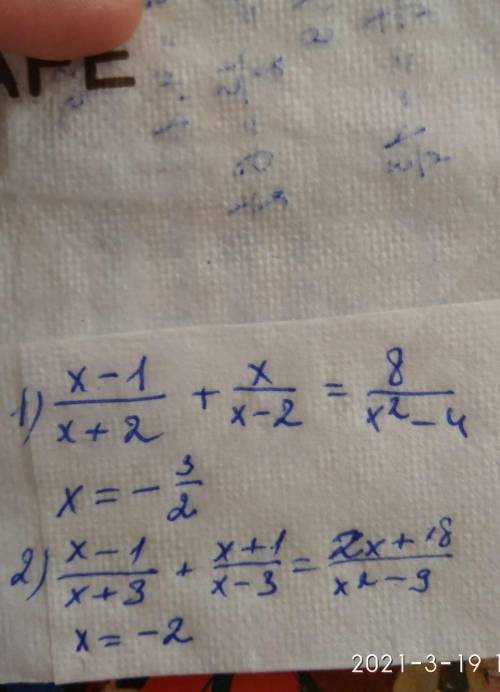 1) (x-1)/(x+2) + x/(x-2) = 8/(x²-4)
x = -3/2
2) (x-1)/(x+3) + (x+1)/(x-3) = (2x+18)/(x²-9)
x = -2
2021-3-19 1